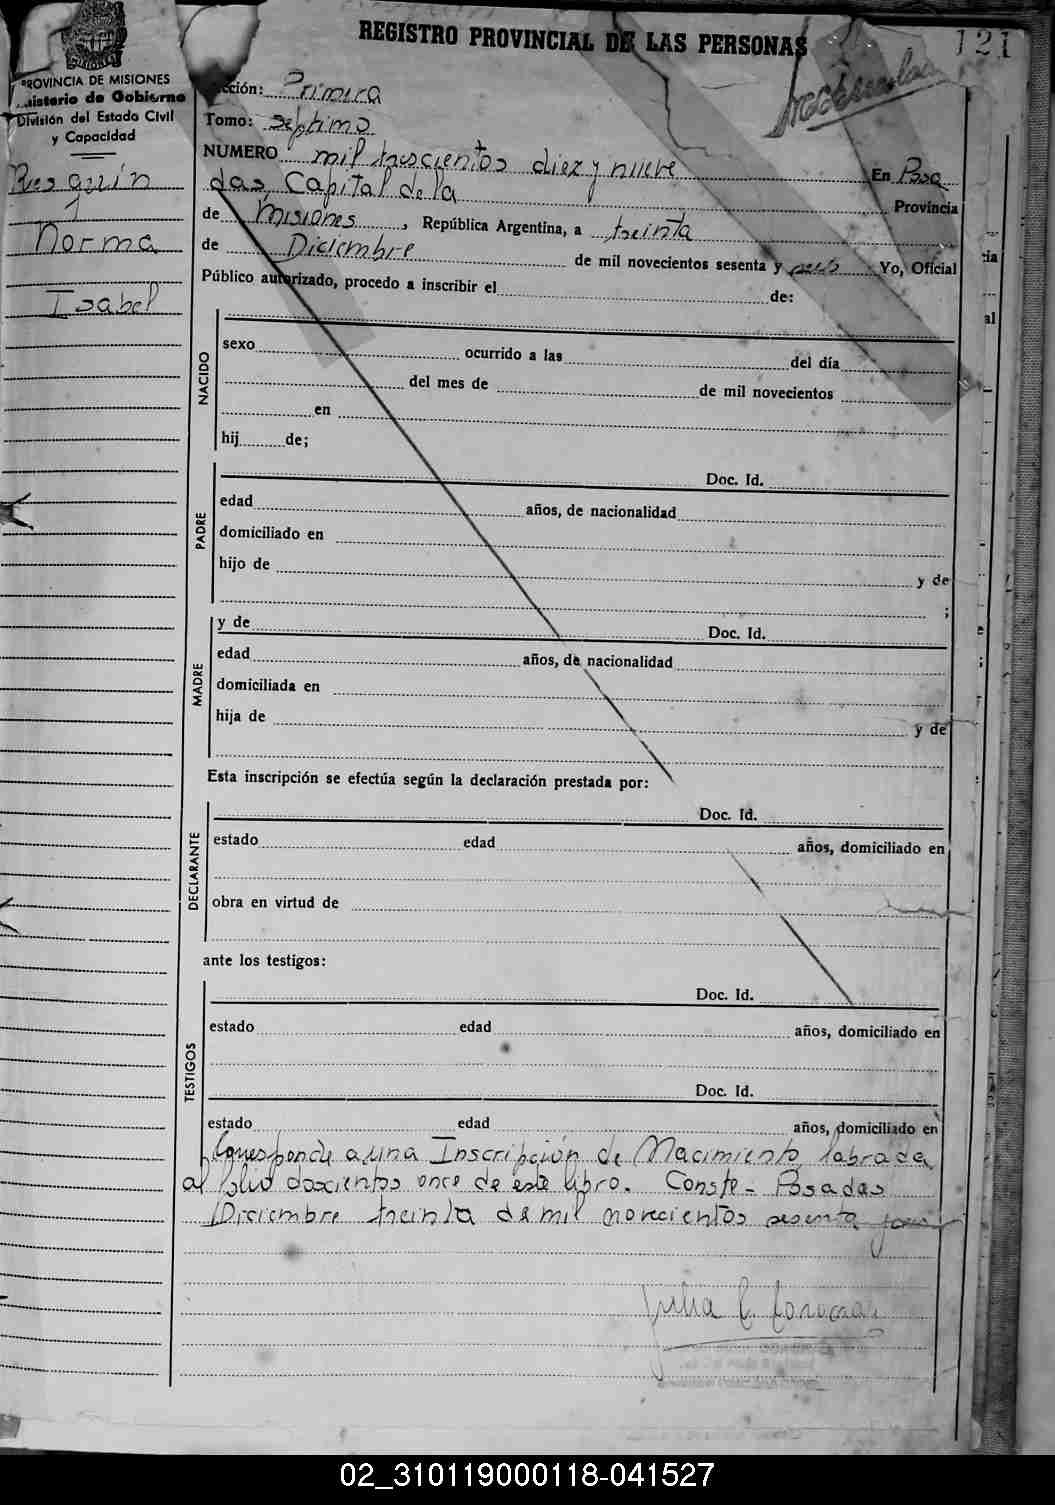 REGISTRO PROVINCIAL DE LAS PERSONAS
121
PROVINCIA DE MISIONES
Ministerio de Gobierno
División del Estado Civil
y Capacidad
Resquín
Norma
Isabel
Sección: Primera
Tomo: septimo
NUMERO mil trescientos diez y nueve En Posa
das, Capital de la Provincia
de Misiones, República Argentina, a treinta
de Diciembre de mil novecientos sesenta y seis Yo, Oficial
Público autorizado, procedo a inscribir el de:
NACIDO
sexo ocurrido a las del día
del mes de de mil novecientos
en
hij de;
PADRE
Doc. Id.
edad años, de nacionalidad
domiciliado en
hijo de y de
;
MADRE
y de Doc. Id.
edad años, de nacionalidad
domiciliada en
hija de y de
Esta inscripción se efectúa según la declaración prestada por:
DECLARANTE
Doc. Id.
estado edad años, domiciliado en
obra en virtud de
ante los testigos:
TESTIGOS
Doc. Id.
estado edad años, domiciliado en
Doc. Id.
estado edad años, domiciliado en
Corresponde a una Inscripción de Nacimiento labrada
al folio doscientos once de este libro. Conste - Posadas
Diciembre treinta de mil novecientos sesenta
02_310119000118-041527